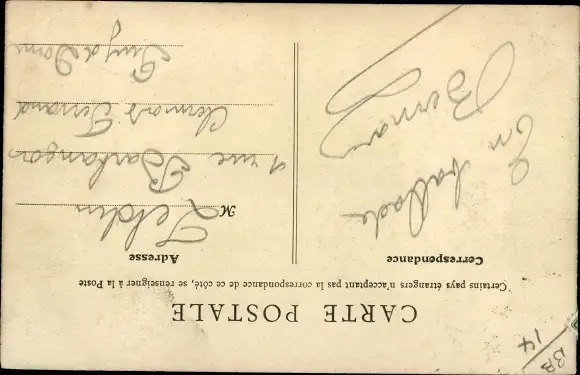 CARTE POSTALE
Certains pays étrangers n'acceptant pas la correspondance de ce côté, se renseigner à la Poste
Correspondance
En ballade
Bernard
Adresse
M
rue
Clermont Ferrand
Puy de Dome
BB
14